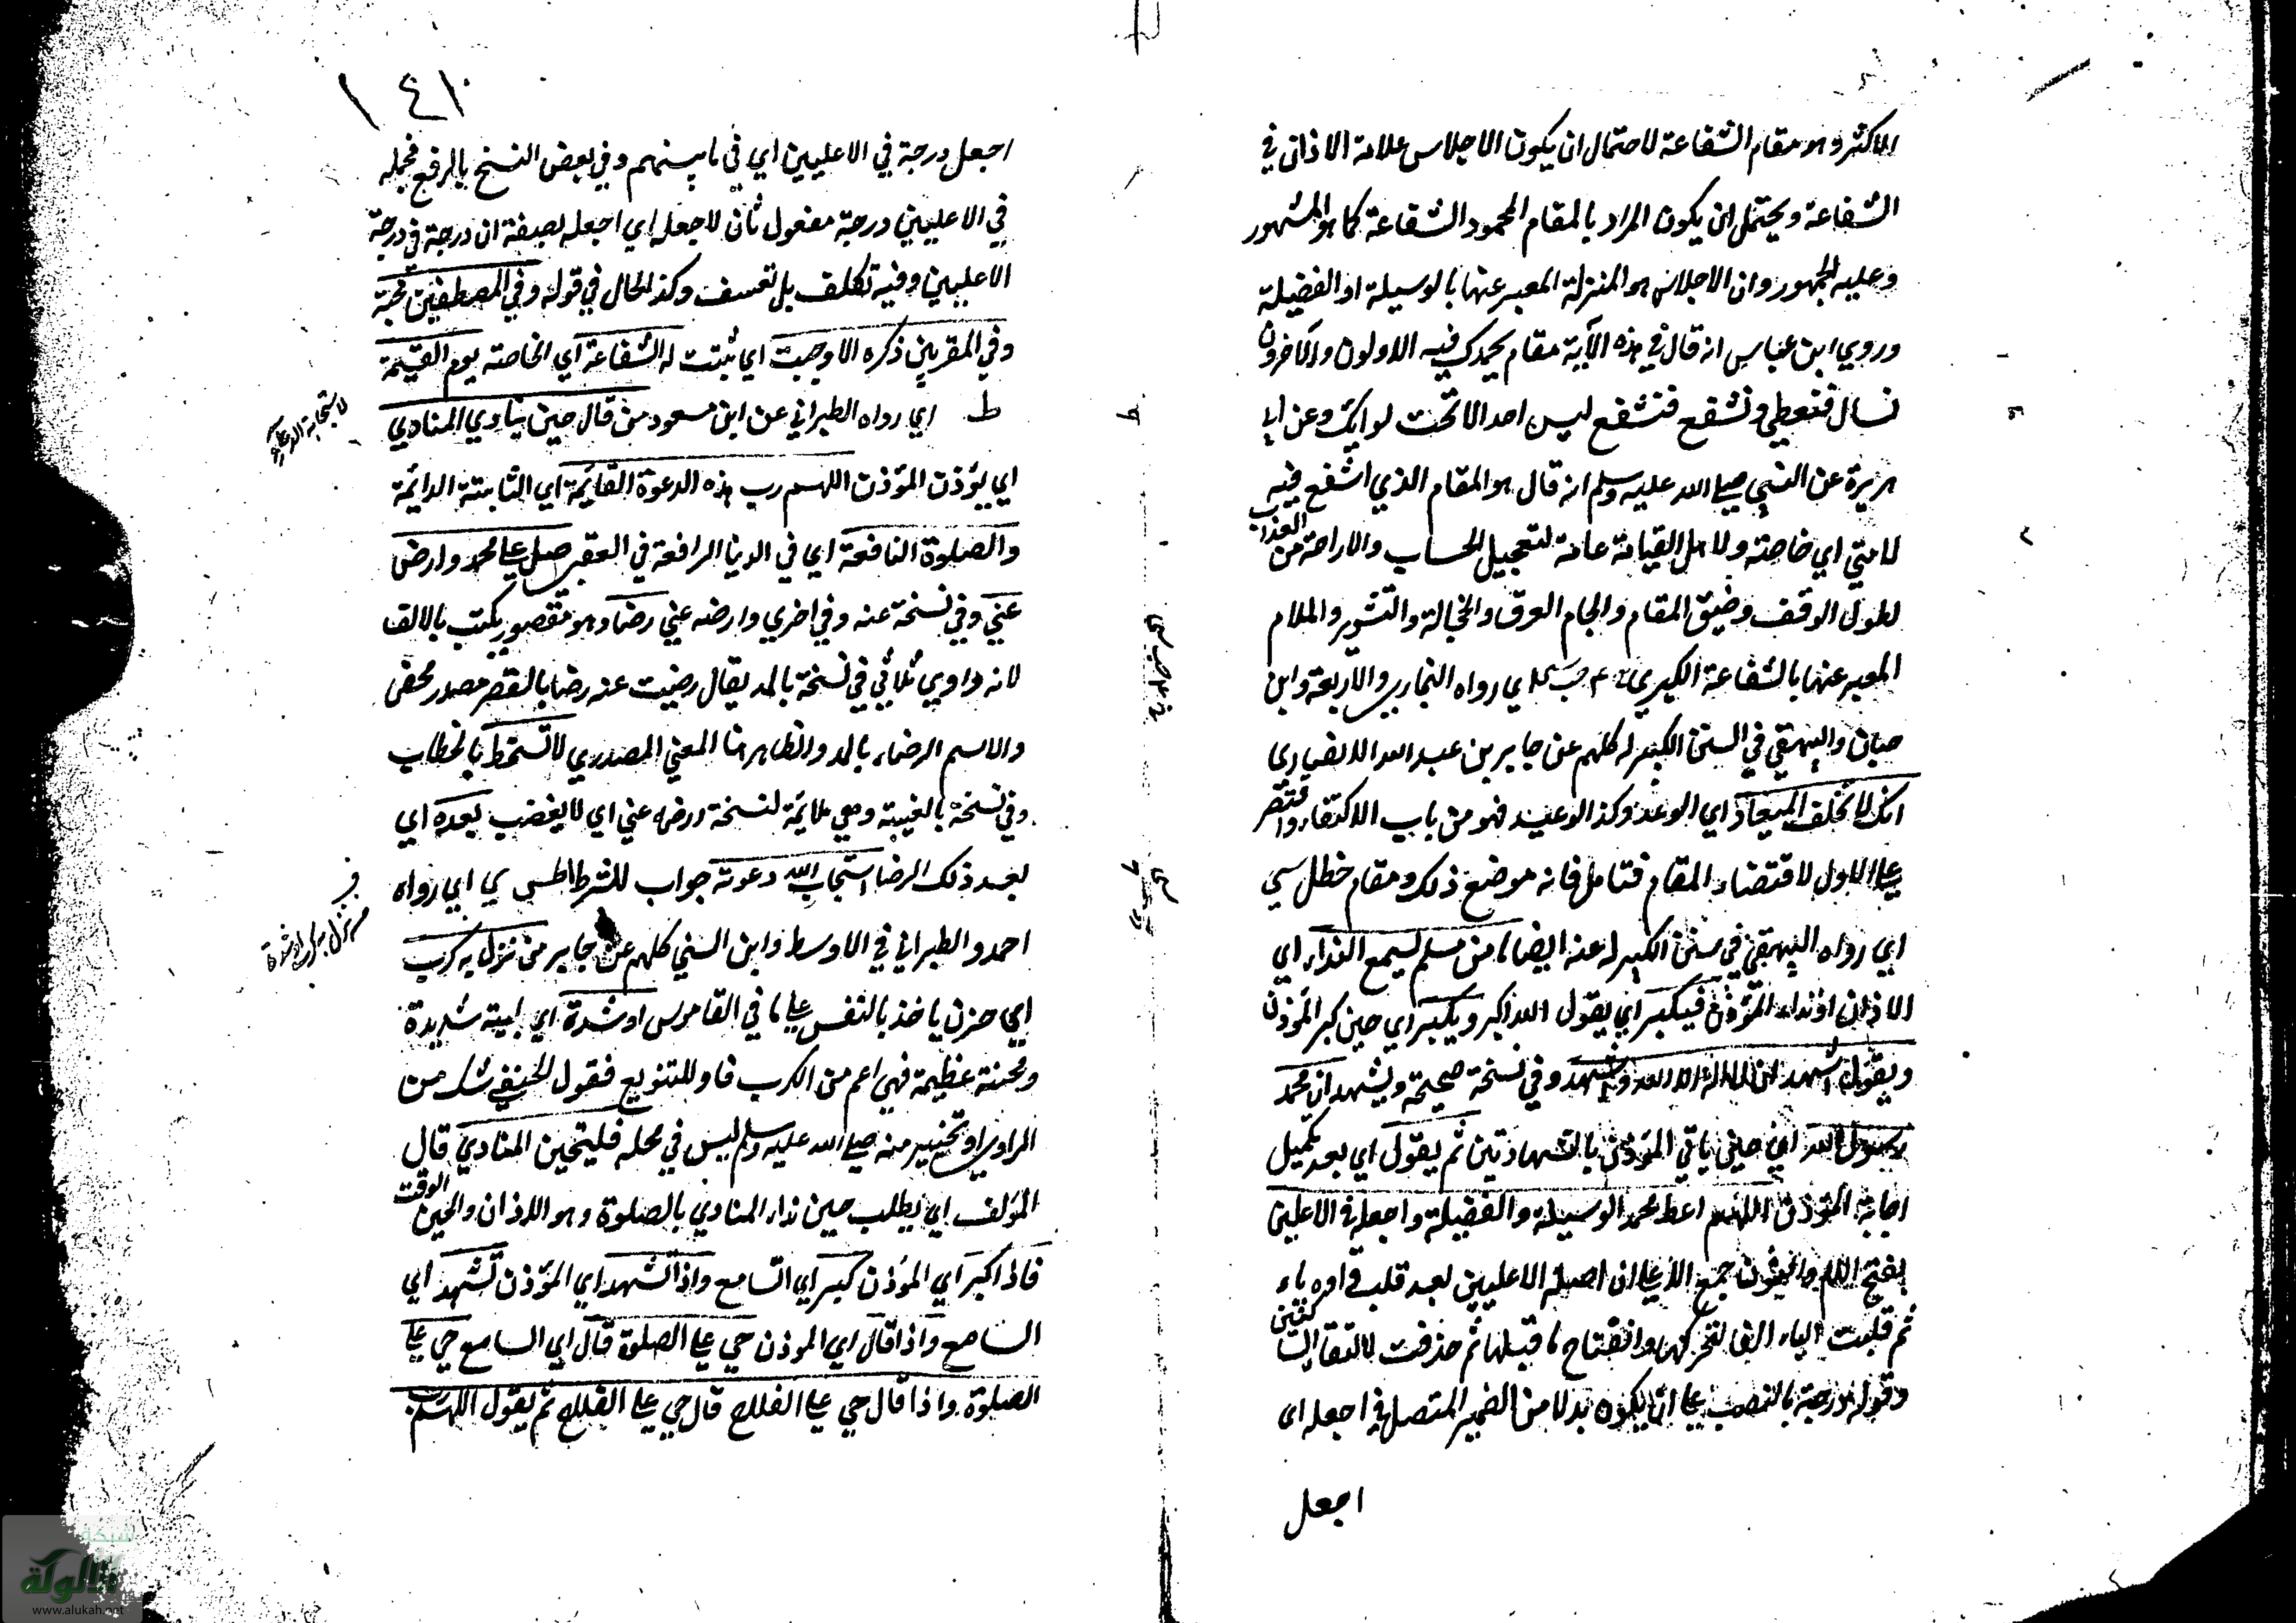 الاكثر وهو مقام الشفاعة لاحتمال ان يكون الاجلاس علامة الاذان في
الشفاعة ويحتمل ان يكون المراد بالمقام المحمود الشفاعة كما هو المشهور
وعليه الجمهور وان الاجلاس هو المنزلة المعبر عنها بالوسيلة او الفضيلة
وروي ابن عباس انه قال في هذه الآية مقام يحمدك فيه الاولون والآخرون
تسال فتعطي وتشفع فتشفع ليس احد الا تحت لوائك وعن ابا
هريرة عن النبي صلي الله عليه وسلم انه قال هو المقام الذي اشفع فيه
لامتي اي خاصة ولاهل القيامة عامة لتعجيل الحساب والاراحة من العذاب
لطول الوقف وضيق المقام والجام العرق والخجالة والتشوير والملام
المعبر عنها بالشفاعة الكبري خ عه حب سى اي رواه البخاري والاربعة وابن
حبان والبيهقي في السنن الكبير له كلهم عن جابر بن عبد الله الانصاري
انك لا تخلف الميعاد اي الوعد وكذ الوعيد فهو من باب الاكتفاء واقتصر
علي الاول لاقتضاء المقام فتامل فانه موضع ذلك ومقام خطل سي
اي رواه البيهقي في سنن الكبير له عنه ايضا ما من مسلم يسمع النداء اي
الاذان او نداء المؤذن فيكبر اي يقول الله اكبر ويكبر اي حين كبر المؤذن
ويقول اشهد ان لا اله الا الله واشهد وفي نسخة صحيحة ويشهد ان محمد
رسول الله اي حين ياتي المؤذن بالشهادتين ثم يقول اي بعد تكميل
اجابة المؤذن اللهم اعط محمد الوسيلة والفضيلة واجعله في الاعلين
بفتح اللام والنون جمع الاعلي ان اصله الاعليين بعد قلب واوه ياء
ثم قلبت الياء الفا لتحركها وانفتاح ما قبلها ثم حذفت لالتقاء الساكنين
وقوله درجة بالنصب علي ان يكون بدلا من الضمير المتصل في اجعله اي
اجعل
١٤١٠
اجعل درجة في الاعليين اي في ما بينهم وفي بعض النسخ بالرفع فجملة
في الاعليين درجة مفعول ثان لاجعله اي اجعله بصفة ان درجة في درجة
الاعليين وفيه تكلف بل تعسف وكذ الحال في قوله وفي المصطفين محبة
وفي المقربين ذكره الا وجبت اي ثبتت له الشفاعة اي الخاصة يوم القيمة
ط اي رواه الطبراني عن ابن مسعود من قال حين ينادي المنادي
اي يؤذن المؤذن اللهم رب هذه الدعوة القايمة اي الثابتة الدائمة
والصلوة النافعة اي في الدنيا الرافعة في العقبي صل علي محمد وارض
عني وفي نسخة عنه وفي اخري وارضه عني رضا وهو مقصور يكتب بالالف
لانه واوي ثلاثي في نسخة بالمد يقال رضيت عنه رضا بالقصر مصدر محض
والاسم الرضاء بالمد والظاهر هنا المعني المصدري لا تسخط بالخطاب
وفي نسخة بالغيبة وهي ملايمة لنسخة ورضه عني اي لا يغضب بعده اي
بعد ذلك الرضا استجاب الله دعوته جواب للشرط اطس ي اي رواه
احمد والطبراني في الاوسط وابن السني كلهم عن جابر من نزل به كرب
اي حزن ياخذ بالنفس علي ما في القاموس او شدة اي بلية شديدة
ومحنة عظيمة فهي اعم من الكرب فاو للتنويع فقول الحنفي شك من
الراوي او تخيير منه صلي الله عليه وسلم ليس في محله فليتحين المنادي قال
المؤلف اي يطلب حين نداء المنادي بالصلوة وهو الاذان والحين الوقت
فاذا كبر اي المؤذن كبر اي السامع واذا تشهد اي المؤذن تشهد اي
السامع واذا قال اي الموذن حي علي الصلوة قال اي السامع حي علي
الصلوة واذا قال حي علي الفلاح قال حي علي الفلاح ثم يقول اللهم رب
شبكة
الألوكة
www.alukah.net